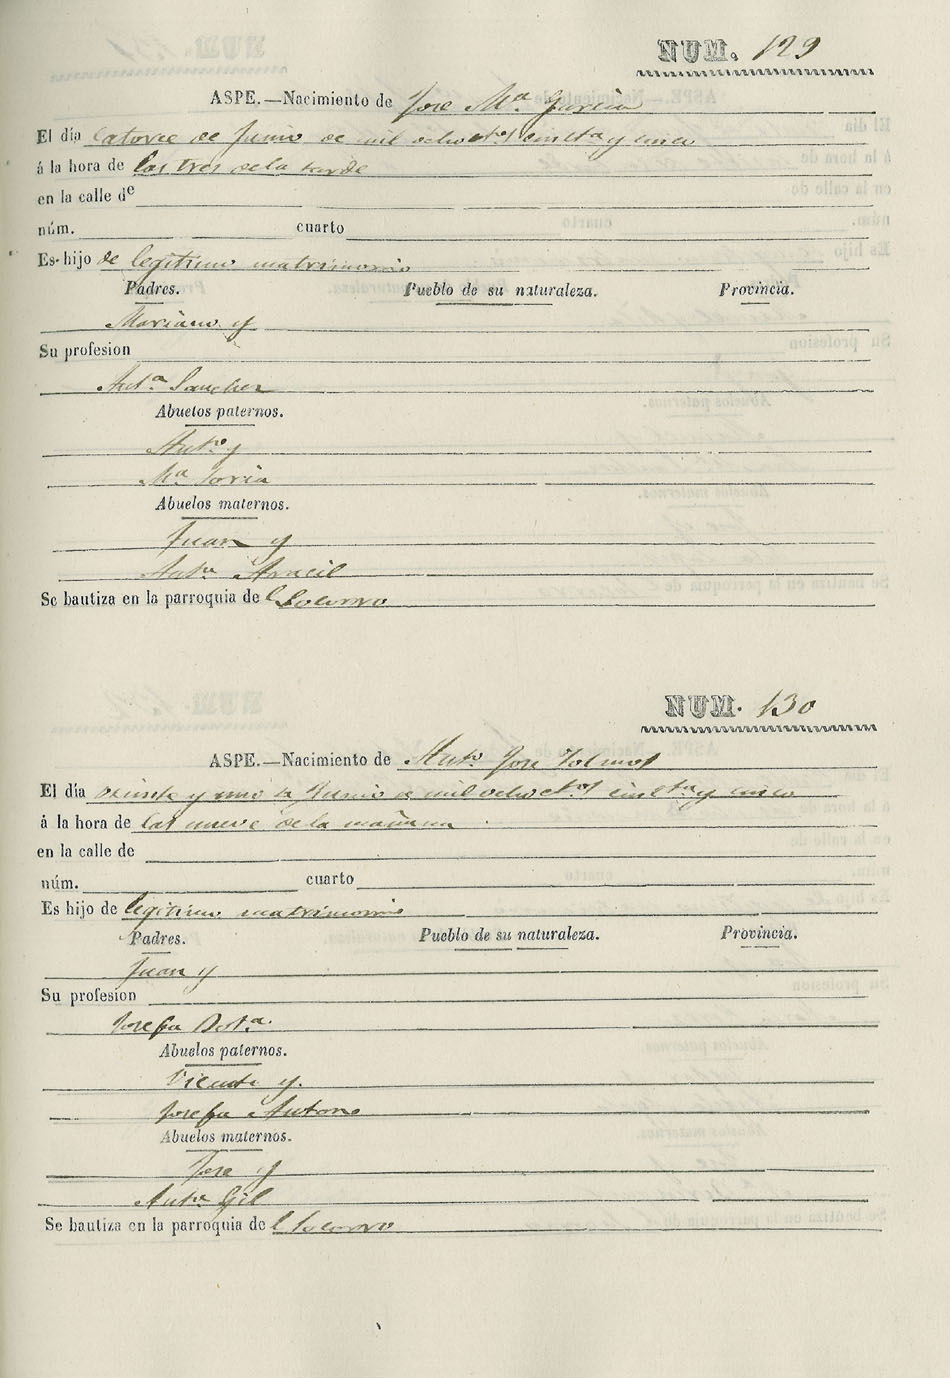 NUM. 129
ASPE.—Nacimiento de Jose Mª Garcia
El día Catorce de Junio de mil ochoctos cincta y cinco
á la hora de las tres de la tarde
en la calle de
núm. cuarto
Es hijo de legitimo matrimonio
Padres. Pueblo de su naturaleza. Provincia.
Mariano y
Su profesion
Antª Sanchez
Abuelos paternos.
Antº y
Mª Soria
Abuelos maternos.
Juan y
Antª Aracil
Se bautiza en la parroquia del Socorro
NUM. 130
ASPE.—Nacimiento de Antº Jose
El día veinte y uno de Junio de mil ochoctos cincta y cinco
á la hora de las nueve de la mañana
en la calle de
núm. cuarto
Es hijo de legitimo matrimonio
Padres. Pueblo de su naturaleza. Provincia.
Juan y
Su profesion
Josefa Botª
Abuelos paternos.
Vicente y
Josefa Antone
Abuelos maternos.
Jose y
Antª Gil
Se bautiza en la parroquia del Socorro